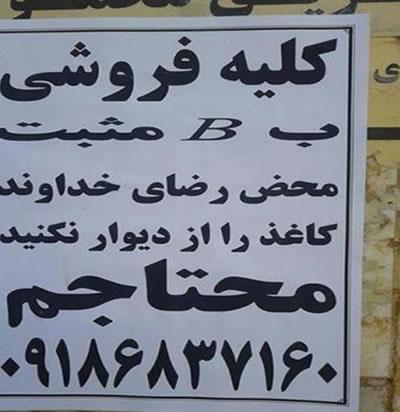 کلیه فروشی
ب B مثبت
محض رضای خداوند
کاغذ را از دیوار نکنید
محتاجم
۰۹۱۸۶۸۳۷۱۶۰